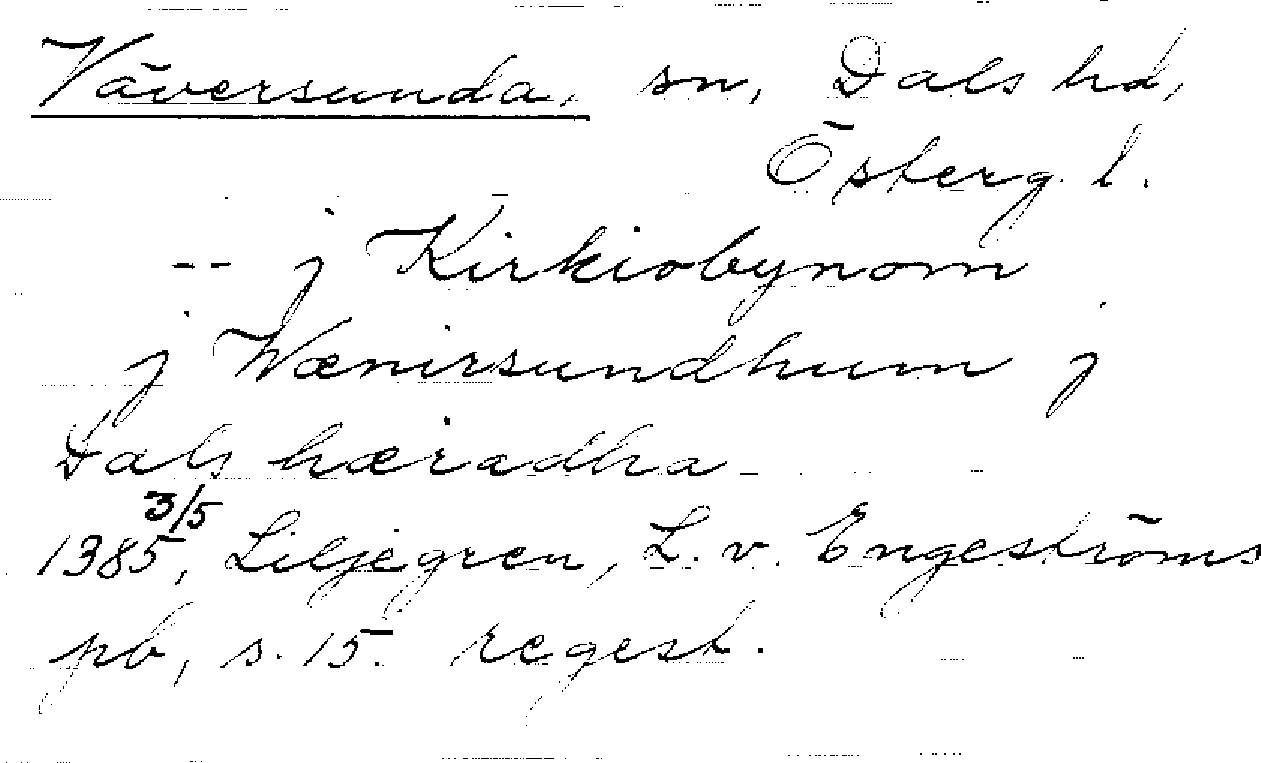 Väversunda, sn, Dals hd,
Österg. l.
-- j Kirkiobynom
j Wænirsundhum j
Dals hæradha
1385 3/5, Liljegren, L. v. Engeströms
pb, s. 15. regest.